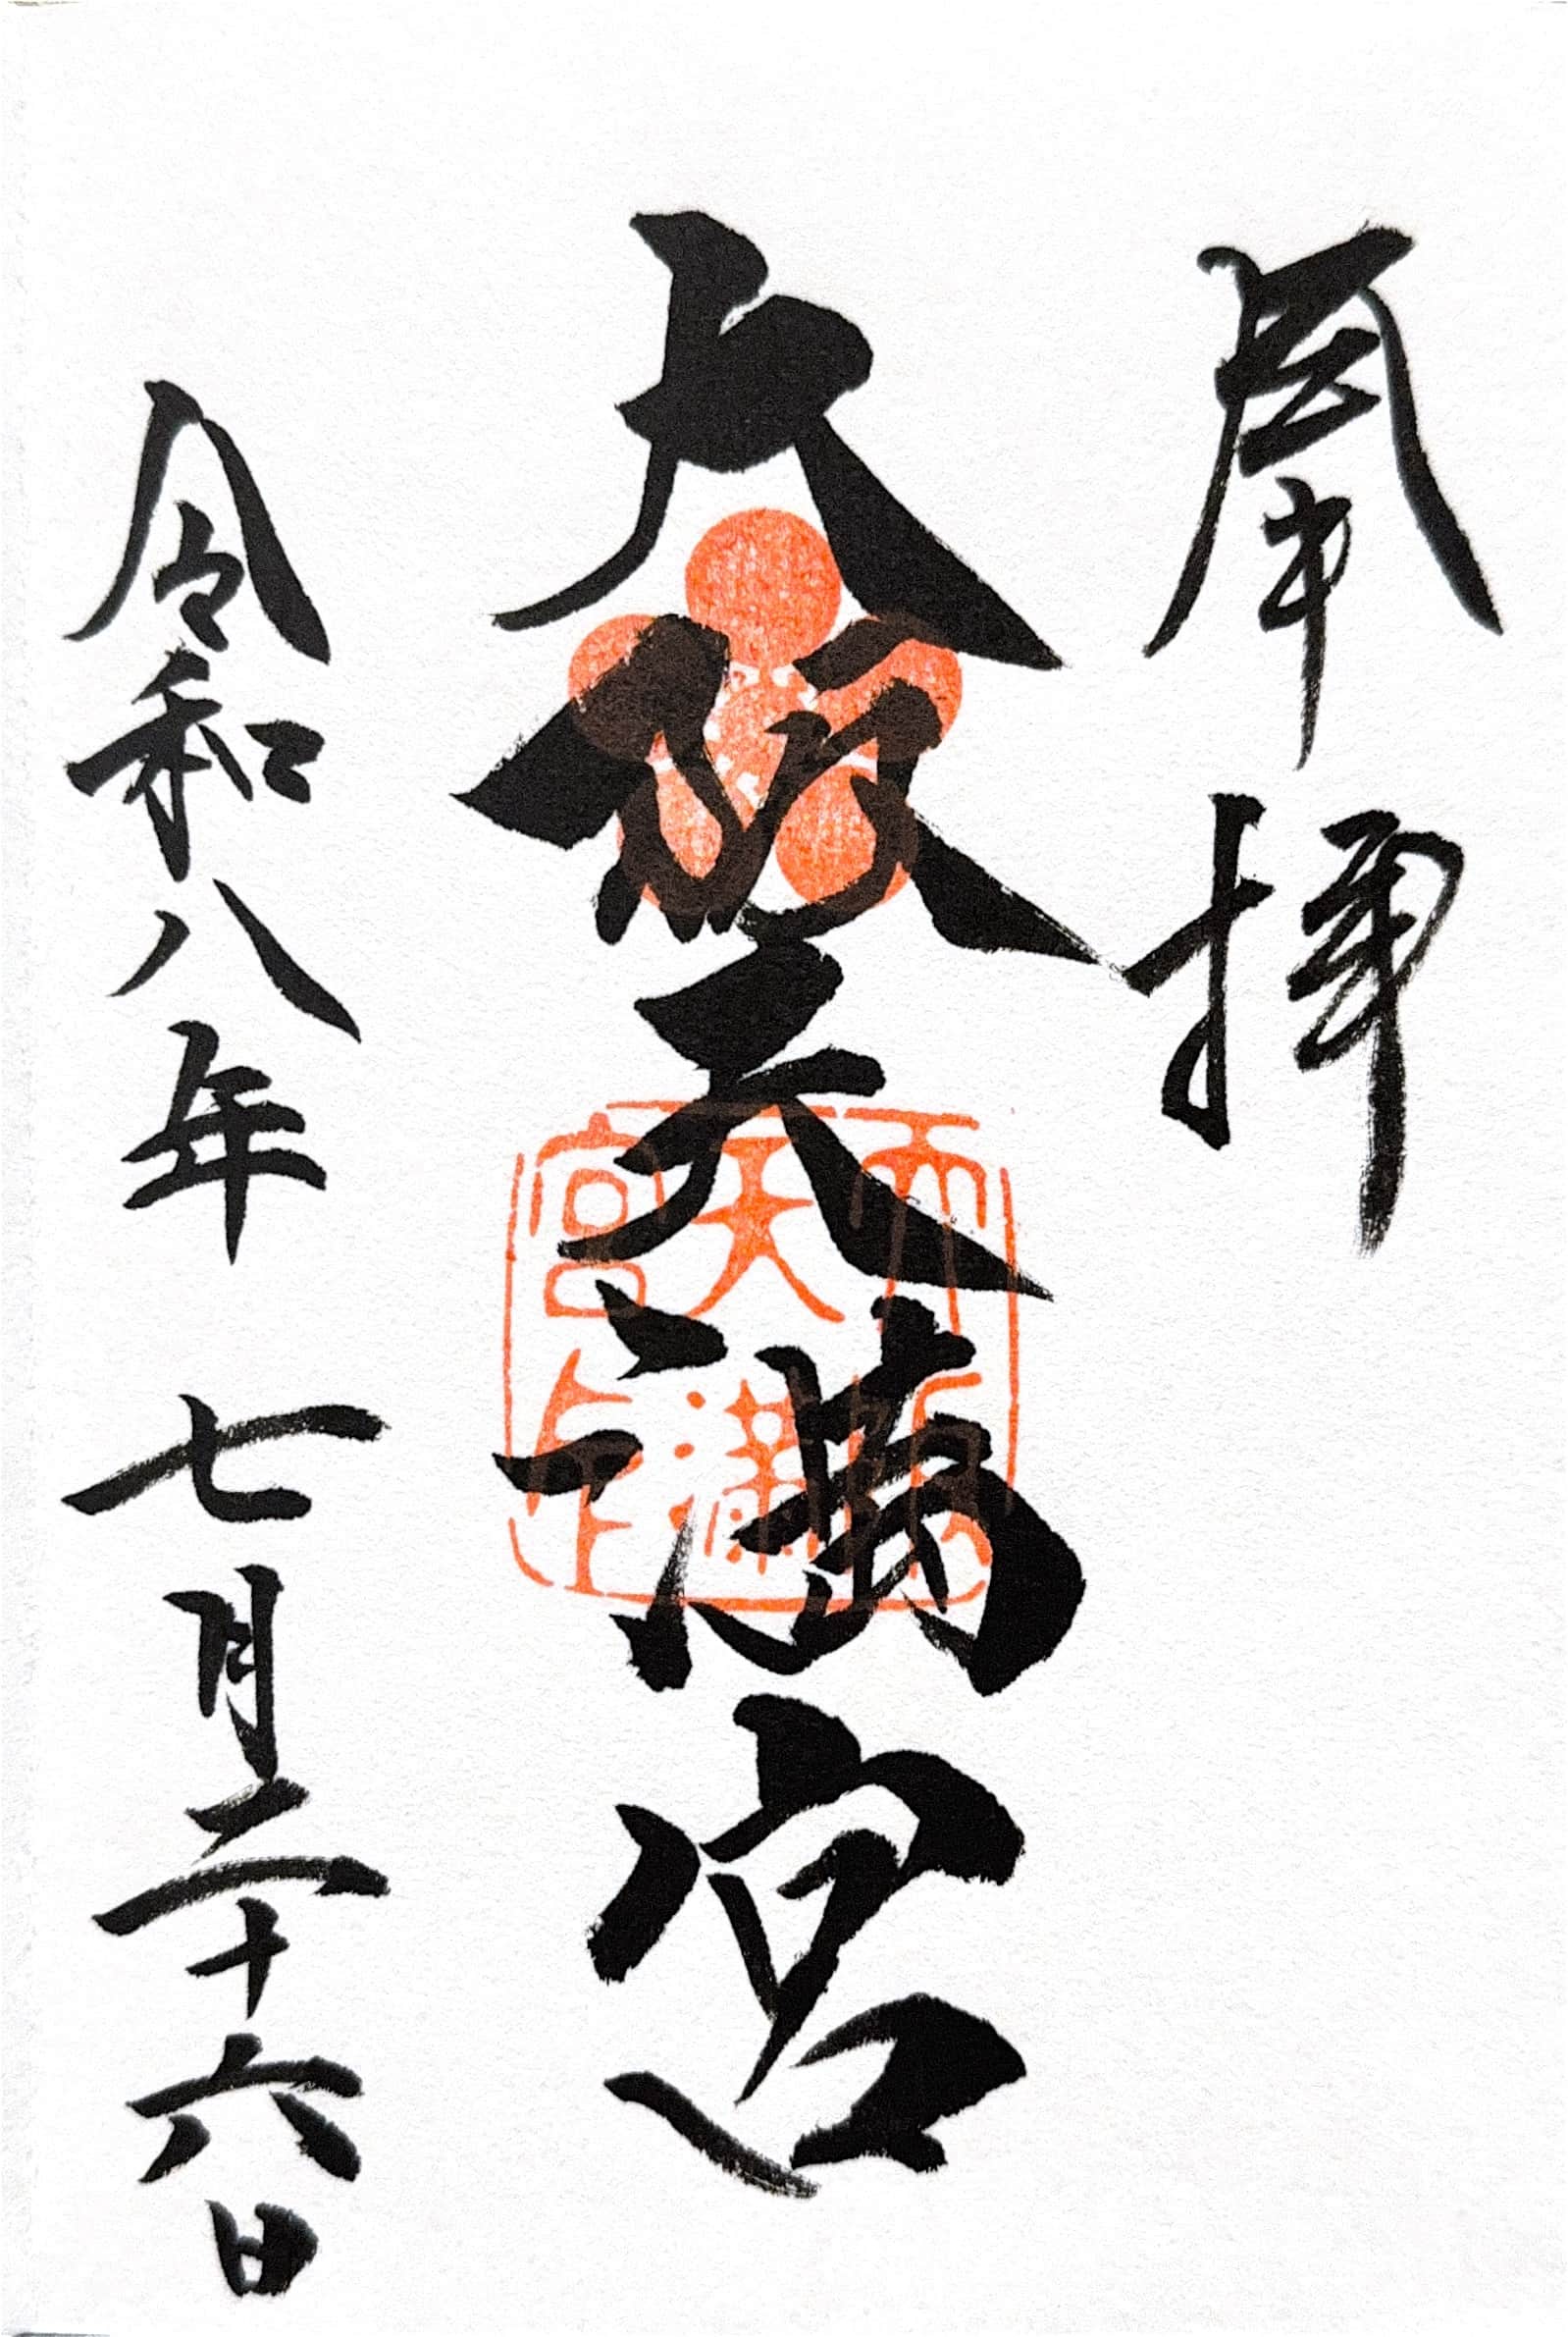 奉拝
大阪天満宮
大阪
天満
宮印
令和八年 七月二十六日